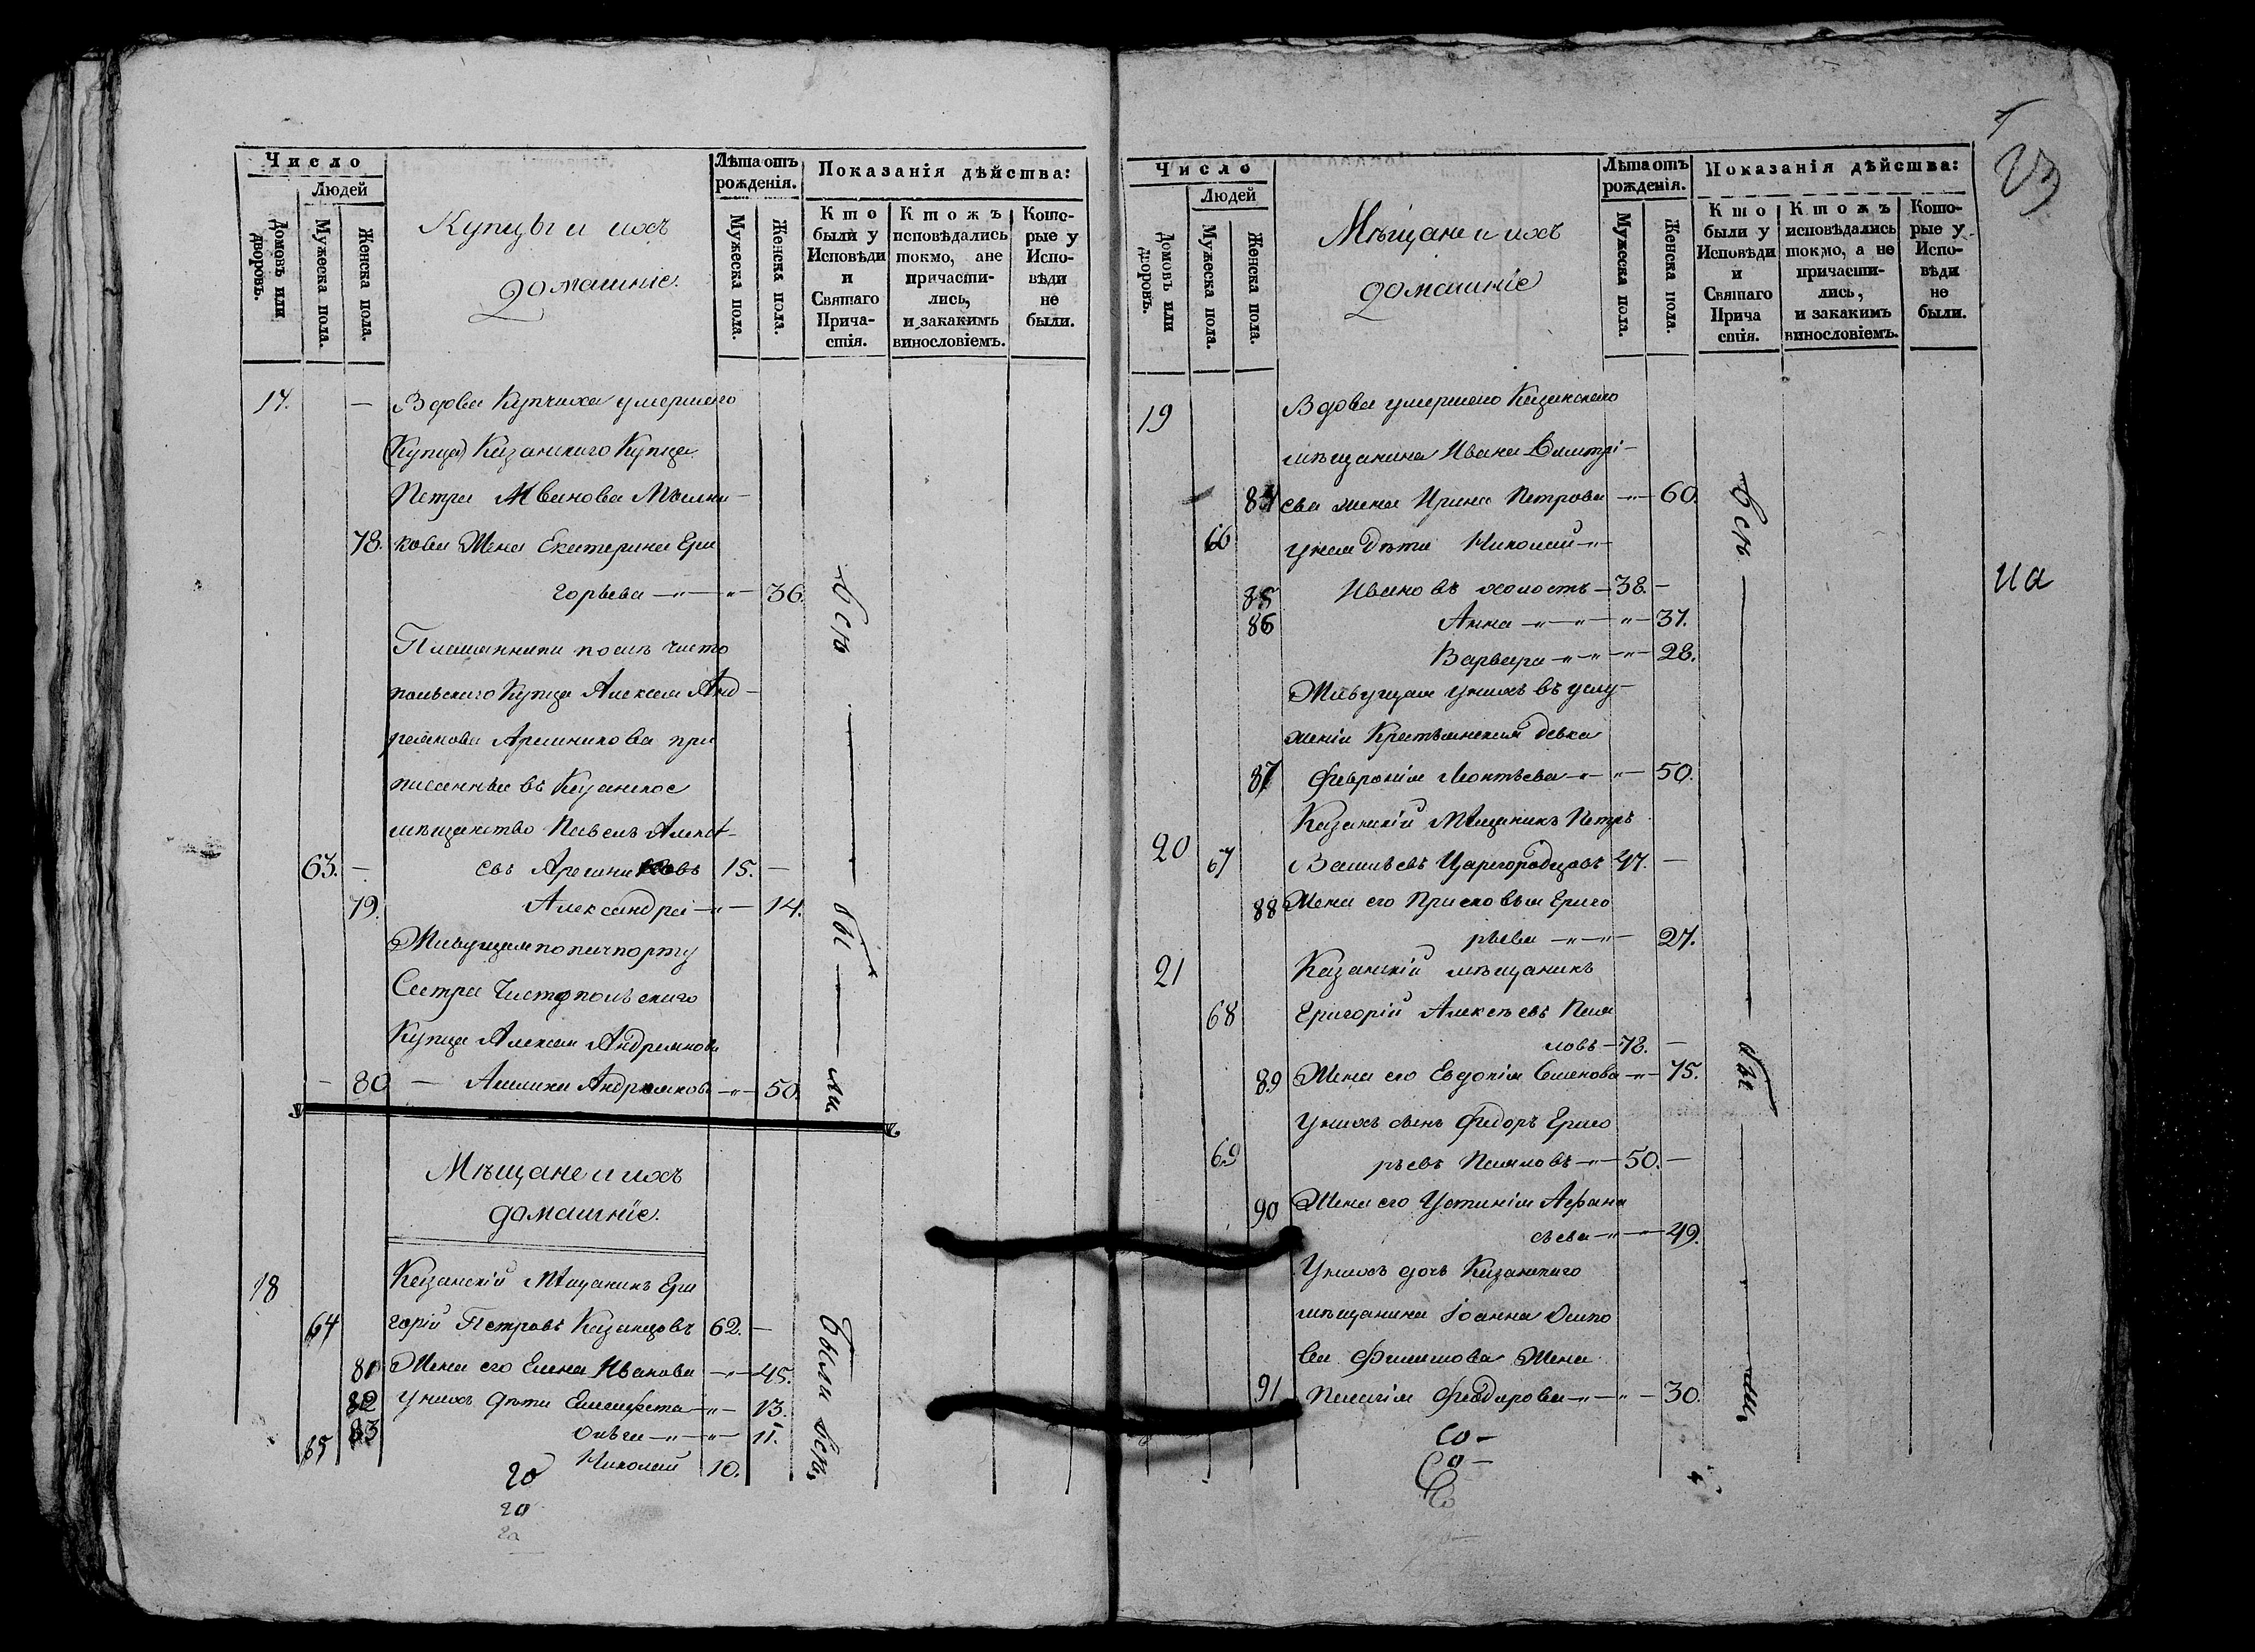 Число
Людей
Домовъ или дворовъ.
Мужеска пола.
Женска пола.
Купцы и ихъ
домашніе.
Лѣта отъ рожденія.
Мужеска пола.
Женска пола.
Показанія дѣйства:
Кто были у Исповѣди и Святаго Прича-стія.
Ктожъ исповѣдались токмо, ане причасти-лись, и закакимъ винословіемъ.
Кото-рые у Испо-вѣди не были.
17. — Вдова Купчиха умершаго
(Купца) Казанскаго Купца
Петра Иванова Мыльни-
78. кова Жена Екатерина Гри
горьева — „ — „ — 36.
Племянники посынъ чисто
польскаго Купца Алексея Анд-
реянова Арешникова при
писанныя въ Казанское
мѣщанство Павелъ Алексѣ-
63. — евъ Арешниковъ 15. —
79. Александра — „ — 14.
Живущая попашпорту
Сестра Чистопольскаго
Купца Алексея Андреянова
— 80 — Андреянова — „ — 50.
всѣ — бы — ли
Мѣщане и ихъ
домашніе.
18 Казанскій Мѣщанинъ Гри
64 горій Петровъ Казанцовъ 62. —
81 Жена его Елена Иванова — „ — 45.
82 унихъ дѣти Елисавета — „ — 13.
83 Ольга — „ — „ — 11.
65 Николай 10.
были всѣ
го
го
го
23
Число
Людей
Домовъ или дворовъ.
Мужеска пола.
Женска пола.
Мѣщане и ихъ
домашніе
Лѣта отъ рожденія.
Мужеска пола.
Женска пола.
Показанія дѣйства:
Кто были у Исповѣди и Святаго Прича стія.
Ктожъ исповѣдались токмо, а не причасти-лись, и закакимъ винословіемъ.
Кото-рые у Испо-вѣди не были.
19 Вдова умершаго Казанскаго
мѣщанина Ивана Дмитрі-
84 ева жена Ирина Петрова — „ — 60.
66 унея дѣти Николай — „
85 Ивановъ холостъ — 38. —
86 Анна — „ — „ — „ — 37.
Варвара — „ — „ — „ — 28.
Живущая унихъ въ услу-
женіи Крестьянская девка
87 Февронія Леонтьева — „ — „ — 50.
Казанскій Мѣщанинъ Петръ
20 67 Васильевъ Царегородцовъ 47. —
88 Жена его Прасковья Григо
рьева — „ — „ — 27.
21 Казанскій мѣщанинъ
68 Григорій Алексѣевъ Пеля
ловъ — 78. —
89 Жена его Евдокія Семенова — „ — 75.
Унихъ сынъ Федоръ Григо
69 рьевъ — „ — 50. —
90 Жена его Устинія Афана
сьева — „ — „ — 49.
Унихъ дочь Казанскаго
мѣщанина Іоанна Осипо
ва Филипова Жена
91 Пелагія Феодорова — „ — „ — 30.
всѣ — бы — ли
на
Со —
Со —
Со